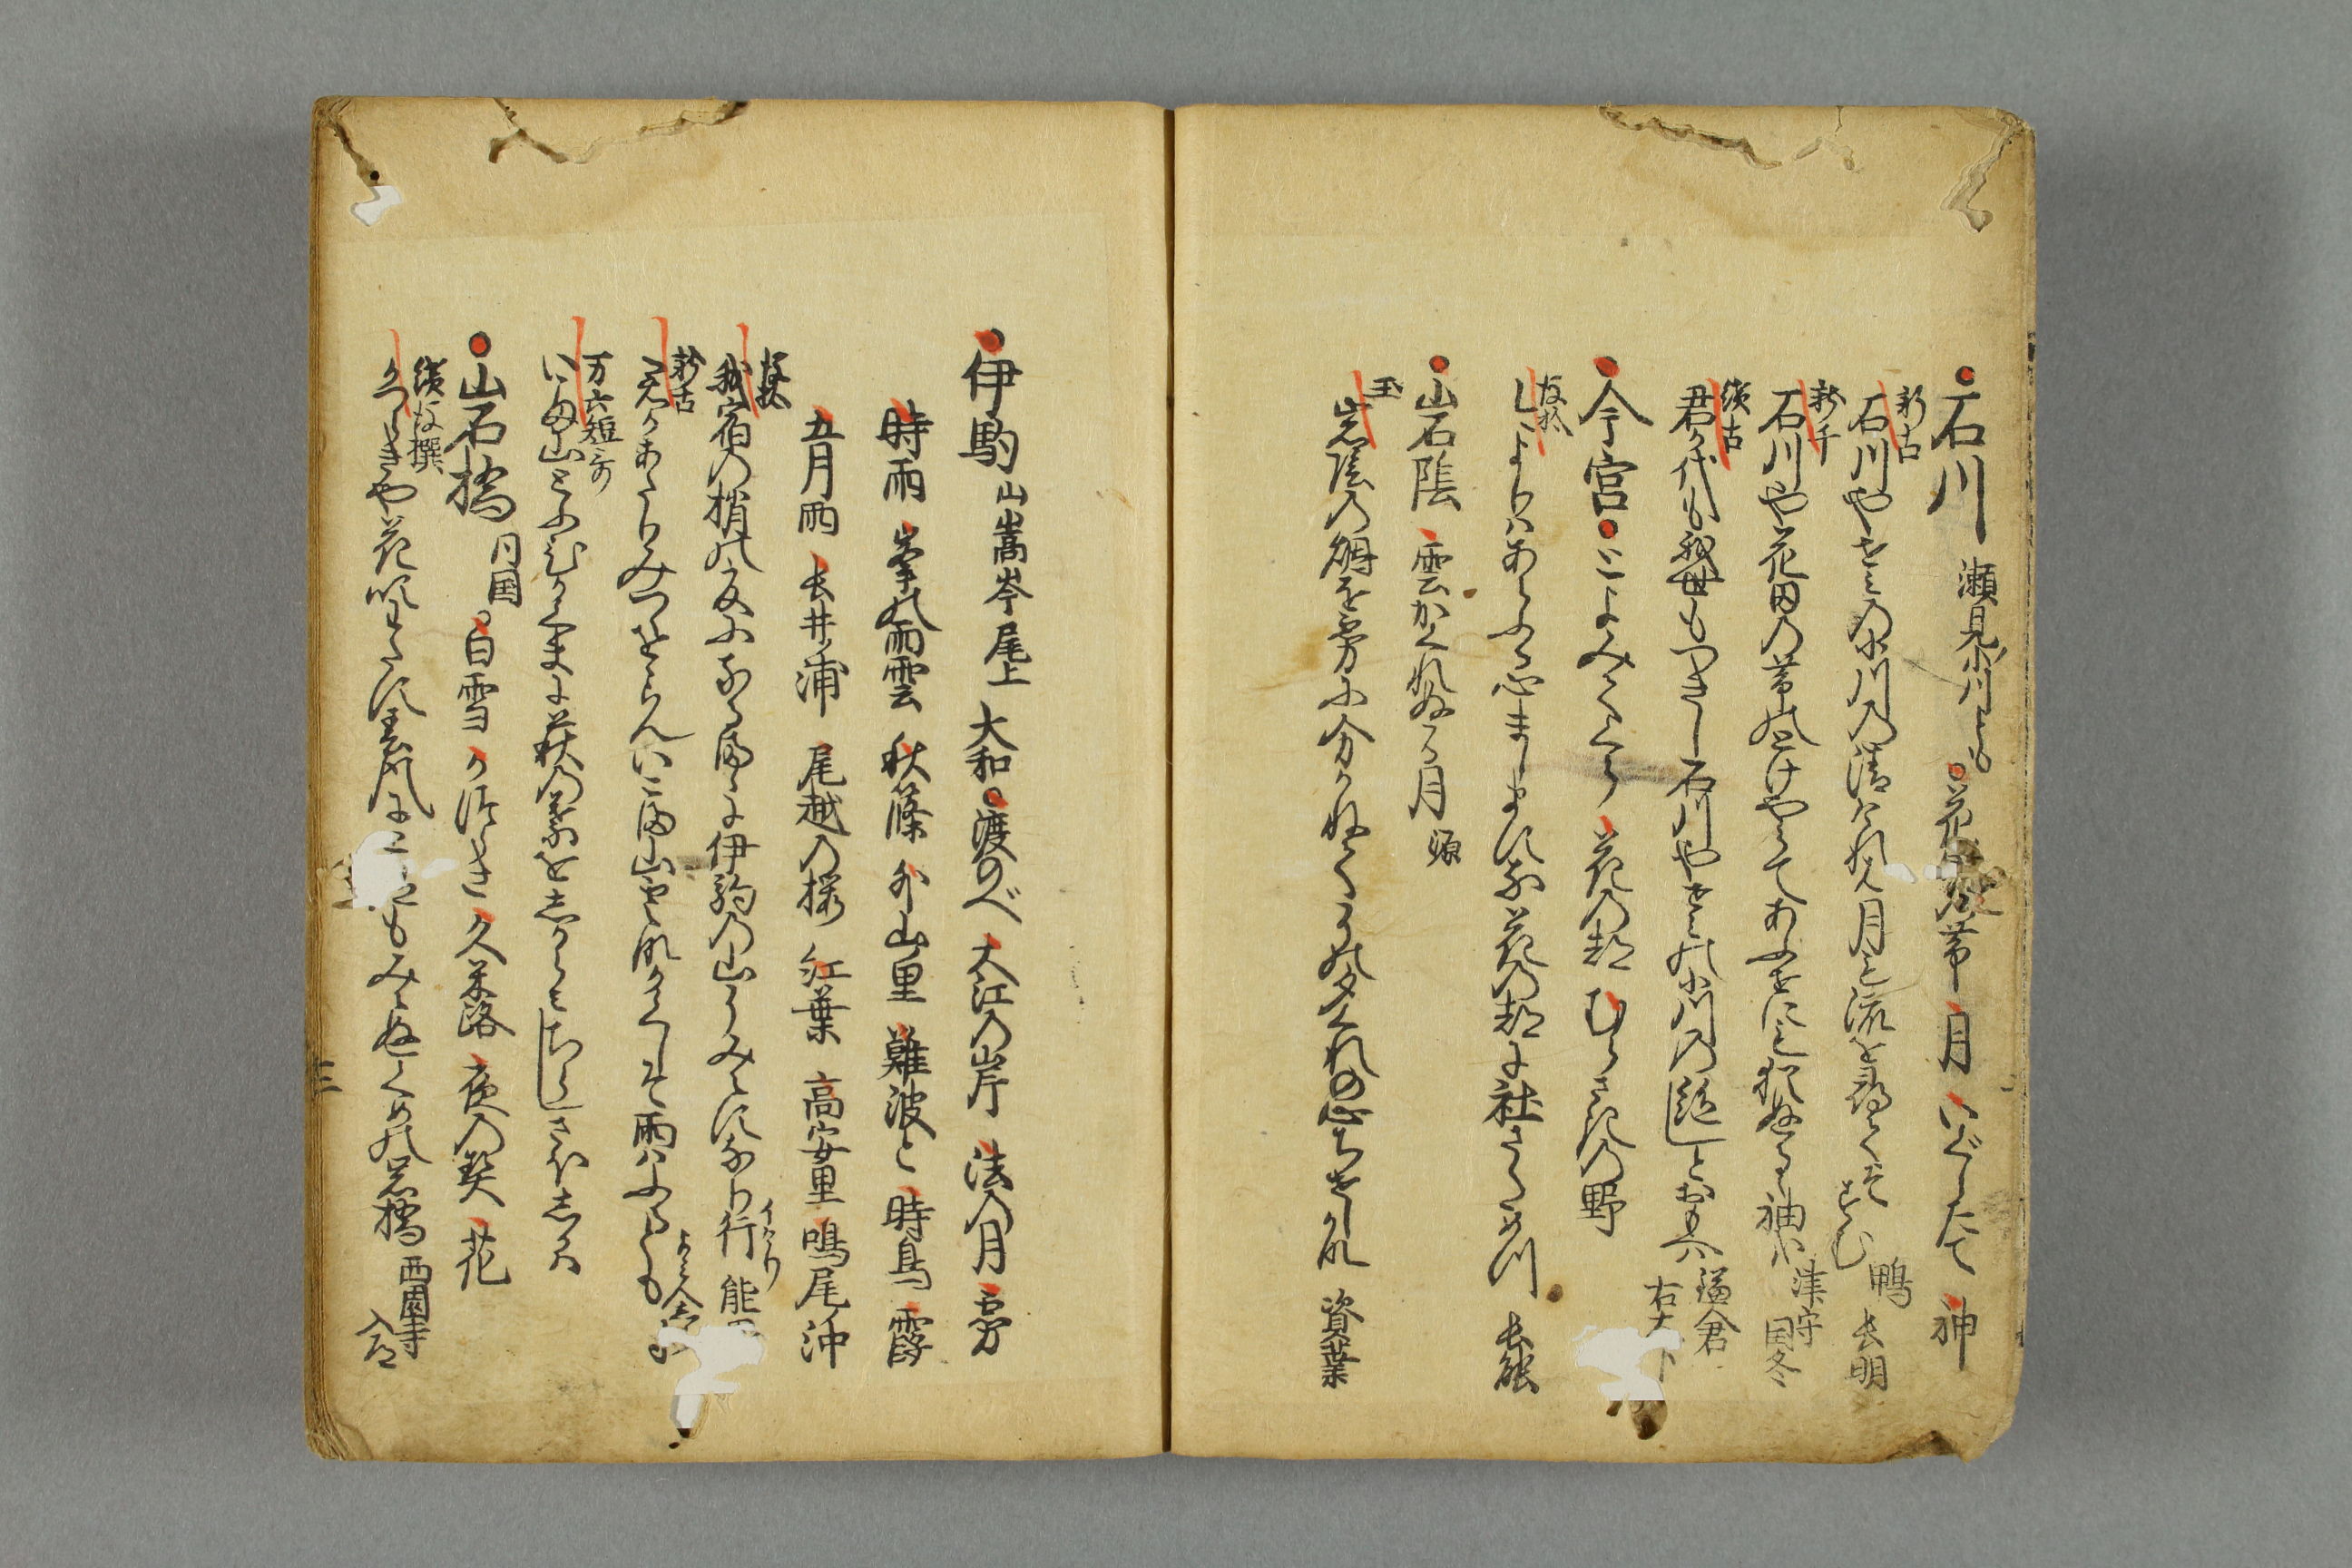 石川 瀬見小川とも 花田 帯 月 いぐしたて 神
新古
石川やせみの小川の清けれは月も流を尋てそすむ 鴨長明
新千
石川や花田の帯の 津守国冬
続古
君か代も我世もつきし石川やせみの小川の絶しとおもへは 鎌倉右大
今宮 こよみてくら 花の都 むらさきの野
後拾
しよりはあらふる心ましますな花の都に社さためつ 長能
岩陰 雲かくれぬる月 源
玉
岩陰の煙を霧に分かねてその夕くれの心ちせしかな 資業
伊駒 山嵩岑尾上 大和 渡のべ 大江の岸 法の月 霧
時雨 峯の雨雲 秋篠 外山里 難波と 時鳥 霞
五月雨 長井浦 尾越の桜 紅葉 高安里 鳴尾沖
後拾
我宿の梢の夏になる時は伊駒の山そみえすなり行 能因
新古
君かあたりみつゝをらんいこま山雲なかくしそ雨はふるとも よみ人
万六短哥
いこま山とふひかくまに萩のえを志からみちらしさほ志か
岩橋 同国 白雪 かつらき 久米路 夜の契 花
続後撰
かつらきや花吹わたす春風にとたえもみえぬくめの岩橋 西園寺入道
三